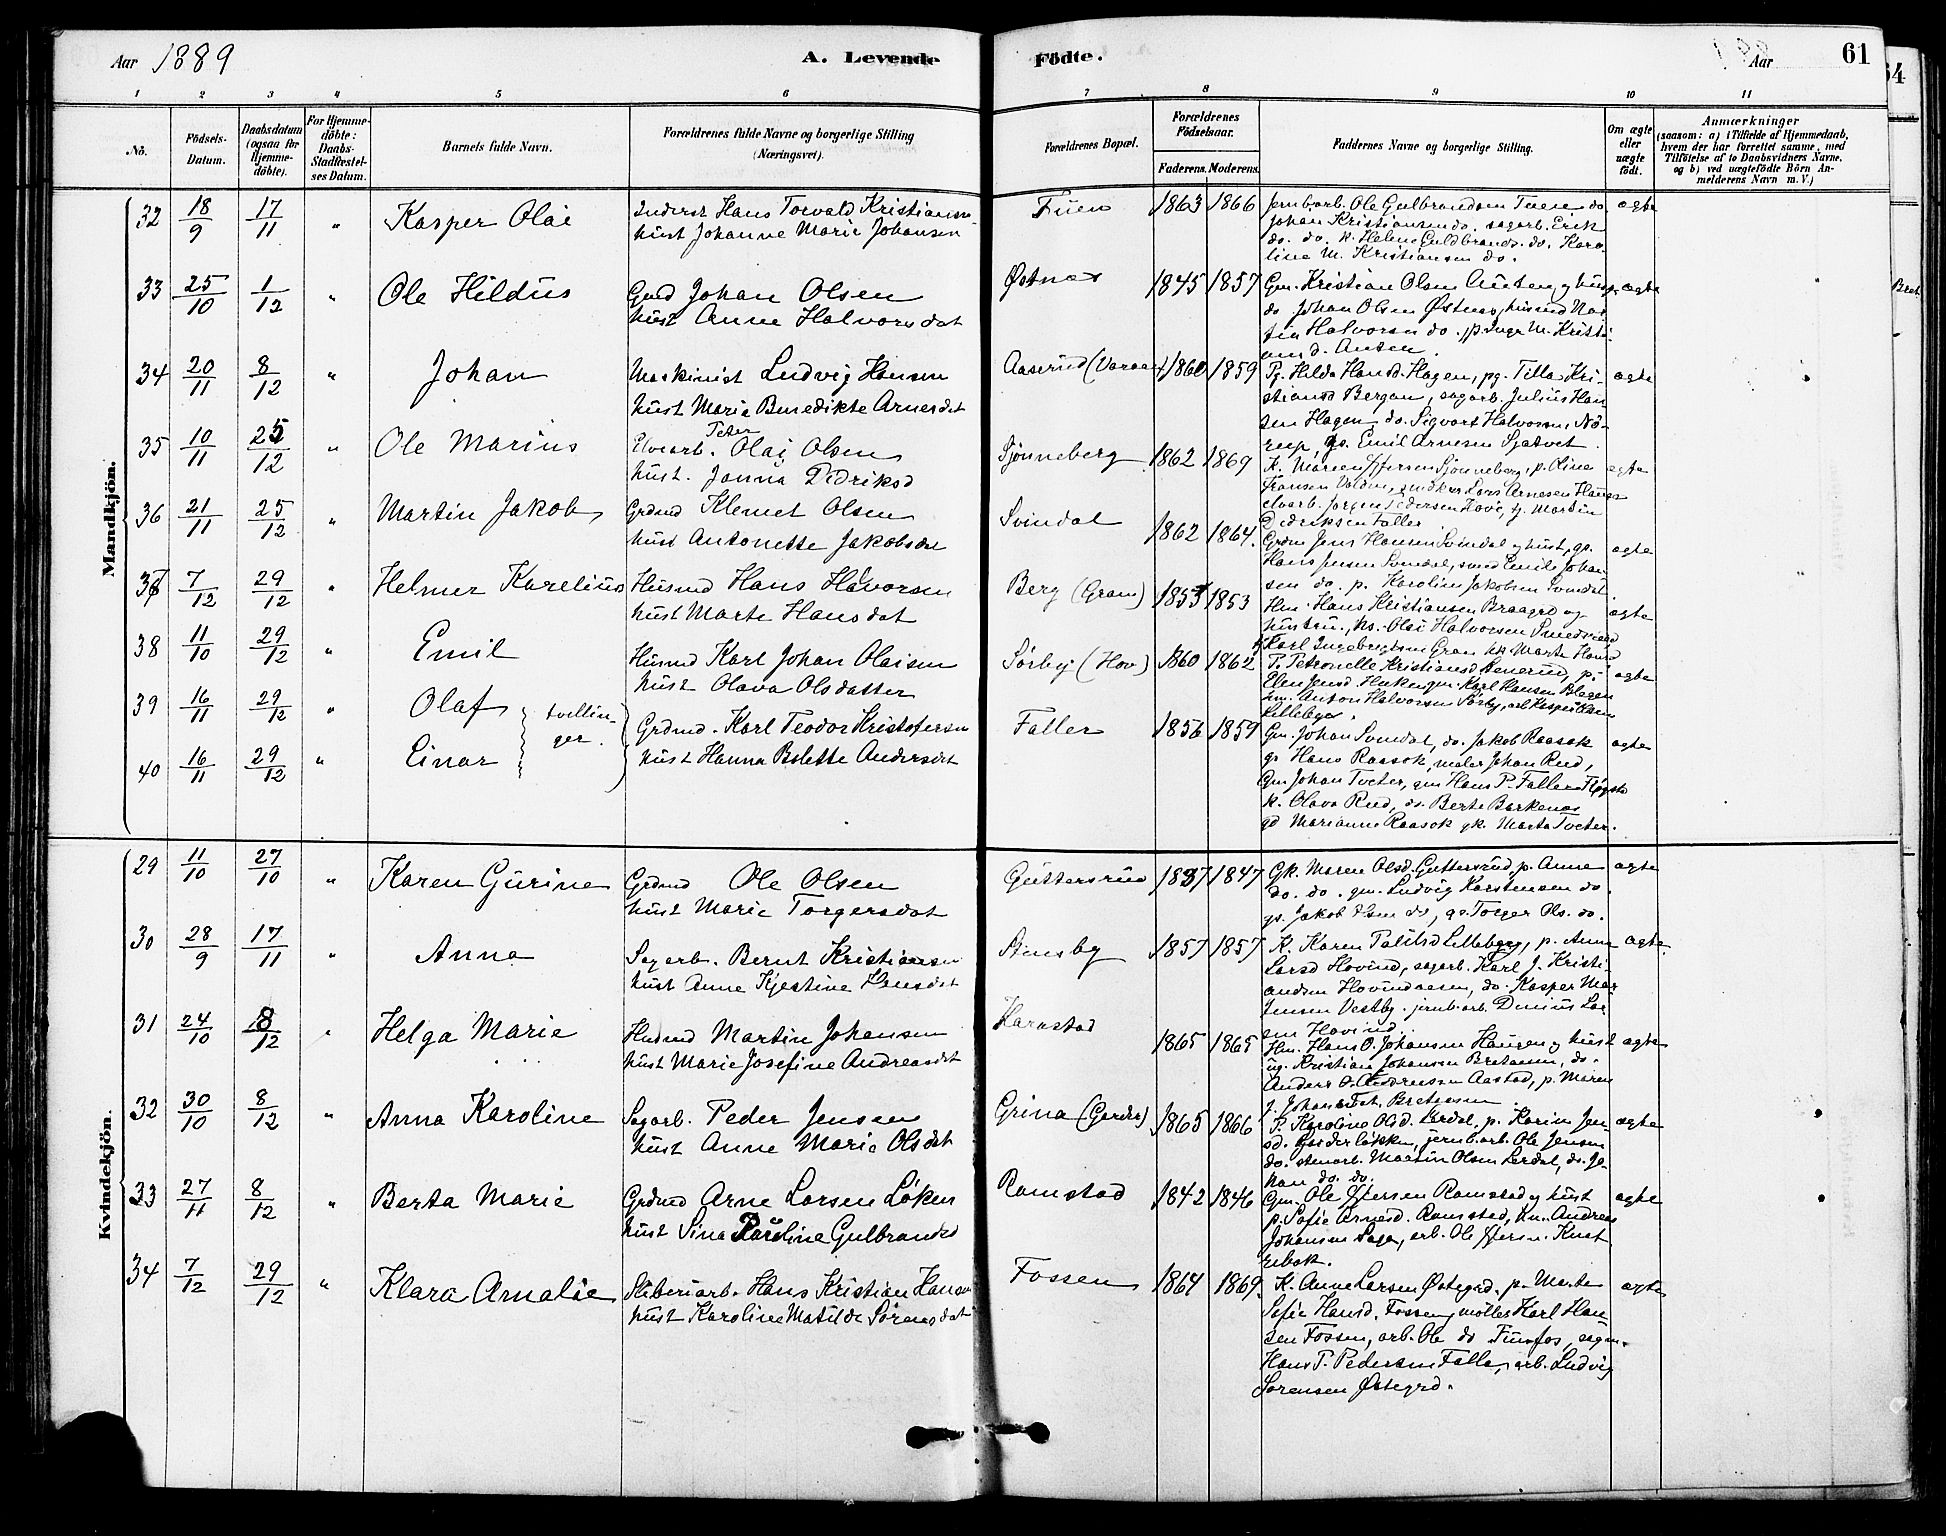 Aar 1889
A. Levende
Födte.
Aar
61
1 2 3 4 5 6 7 8 9 10 11
No.
Födsels-Datum.
Daabsdatum (ogsaa for Hjemme-döbte).
For Hjemme-döbte: Daabs-Stadfæstel-ses Datum.
Barnets fulde Navn.
Forældrenes fulde Navne og borgerlige Stilling (Næringsvei).
Forældrenes Bopæl.
Forældrenes Födselsaar.
Faderens. Moderens.
Faddernes Navne og borgerlige Stilling.
Om ægte eller uægte födt.
Anmærkninger
(saasom: a) i Tilfælde af Hjemmedaab, hvem der har forrettet samme, med Tilföielse af to Daabsvidners Navne, og b) ved uægtefödte Börn An-melderens Navn m. V.)
Mandkjön.
32 18/9 17/11 " Kasper Olai
Inderst Hans Torvald Kristiansen
hust Johanne Marie Johansen
Fuen 1863 1866
Jernb.arb. Ole Gulbrandsen Tuen do
Johan Kristiansen do. sagarb. Erik
do. do. k. Helene Guldbrands. do. Karo
line M. Kristiansen do.
ægte
33 25/10 1/12 " Ole Hildus
Gmd Johan Olsen
hust Anne Halvorsdat
Østnes 1845 1857
Gm. Kristian Olsen Auten og hust
do Johan Olsen Østnes, husmd Mar
tin Halvorsen do. p. Inge M. Kristi
ansd. Auten.
ægte
34 20/11 8/12 " Johan
Maskinist Ludvig Hansen
hust Marie Benedikte Arnesdat
Aaserud (Varaa) 1860 1859
Pg. Hilda Hansd. Hagen, pg. Tilla Kri-
stiansd Bergan, sagarb. Julius Han
sen Hagen, do. Sigvart Halvorsen, No-
rup, gs. Emil Arnesen Sjatvet.
ægte
35 10/11 25/12 " Ole Marius
Elvearb. Peter Olai Olsen
hust. Janna Didriksd
Tjønneberg 1862 1869
K. Maren Iffersen Tjønneberg, p. Oline
Fransen Volden, Lars Arnesen Haugen
elvarb. Jørgen Pedersen Hove, tj. Martin
Didriksen Faller.
ægte
36 21/11 25/12 " Martin Jakob
Grdmd Klemet Olsen
hust Antonette Jakobsdat
Svindal 1862 1864
Grdm Jens Hansen Svindal og hust, gs.
Hans Jensen Svindal, smed Emil Johan
sen do. p. Karoline Jakobsen Svindal.
ægte
37 7/12 29/12 " Helmer Karelius
Husmd Hans Halvorsen
hust Marte Hansdat
Berg (Gran) 1853 1853
Hm. Hans Kristiansen Braagrd og
hustru, hs. Olai Halvorsen Smedsrud
Karl Ingebrigtsen Gran hk Marte Hansd
ægte
38 11/10 29/12 " Emil
Husmd Karl Johan Olaisen
hust Olava Olsdatter
Sørby (Hov) 1860 1862
P. Petronelle Kristiansd Renerud, p.
Elen Jensd. Haken, gm. Karl Hansen Blegen
hm. Anton Halvorsen Sørby, arb Kasper Olsen
Lilleby.
ægte
39 16/11 29/12 " Olaf
40 16/11 29/12 " Einar
tvillin-
ger.
Grdmd. Karl Teodor Kristofersen
hust Hanna Bolette Andersdat
Faller 1856 1859
Gm. Johan Svindal, do. Jakob Raasok
gs Hans Raasok, maler Johan Rud,
Gm Johan Tveter, gm Hans P. Faller
k. Olava Rud, do. Berte Barkenæs
gd Marianne Raasok gk. Marta Tveter.
ægte
Kvindekjön.
29 11/10 27/10 " Karen Gurine
Grdmd Ole Olsen
hust Marie Torgersdat
Guttersrud 1837 1847
Gk. Maren Olsd. Guttersrud, p. Anne
do. do. gm. Ludvig Karstensen do.
gs. Jakob Olsen do, gs. Torger Ols. do.
ægte
30 28/9 17/11 " Anna
Sagarb. Bernt Kristiansen
hust Anne Kjestine Hansdat
Stensby 1857 1857
K. Karen Paulsd Lilleby, p. Anne
Larsd Hovind, sagarb. Karl J. Kristi
andsen Hovindaasen, do. Kasper Mar
tensen Vestby. jernb.arb. Dinius Lar
sen Hovind.
ægte
31 24/10 8/12 " Helga Marie
Husmd Martin Johansen
hust Marie Josefine Andreasdat
Harastad 1865 1865
Hm. Hans O. Johansen Haugen og hust
ug. Kristian Johansen Bretaasen, do.
Anders O. Andersen Aastad, p. Maren
J. Johansdat. Bretaasen
ægte
32 30/10 8/12 " Anna Karoline
Sagarb. Peder Jensen
hust Anne Marie Olsdat
Grina (Garder) 1865 1866
P. Karoline Olsd. Lerdal, p. Karin Jen
sd. Garderløkken, jernb.arb. Ole Jensen
do. stenarb. Martin Olsen Lerdal, do. Jo
han do. do.
ægte
33 27/11 8/12 " Berta Marie
Grdmd Arne Larsen Løken
hust Sina Pauline Gulbrandsd
Ramstad 1842 1846
Gm. Ole Iffersen Ramstad og hust
p. Sofie Arnesd. Ramstad, hm. Andreas
Johansen Saga, arb. Ole Iffersen. Knat
rebak.
ægte
34 7/12 29/12 " Klara Amalie
Sliberiarb. Hans Kristian Hansen
hust Karoline Matilde Sørensdat
Fossen 1864 1869
K. Anne Larsen Østegrd, p. Marte
Sofie Hansd. Fossen, møller Karl Han
sen Fossen, arb. Ole do Funfos, sagm.
Hans P. Pedersen Falla, arb. Ludvig
Sørensen Østegrd.
ægte